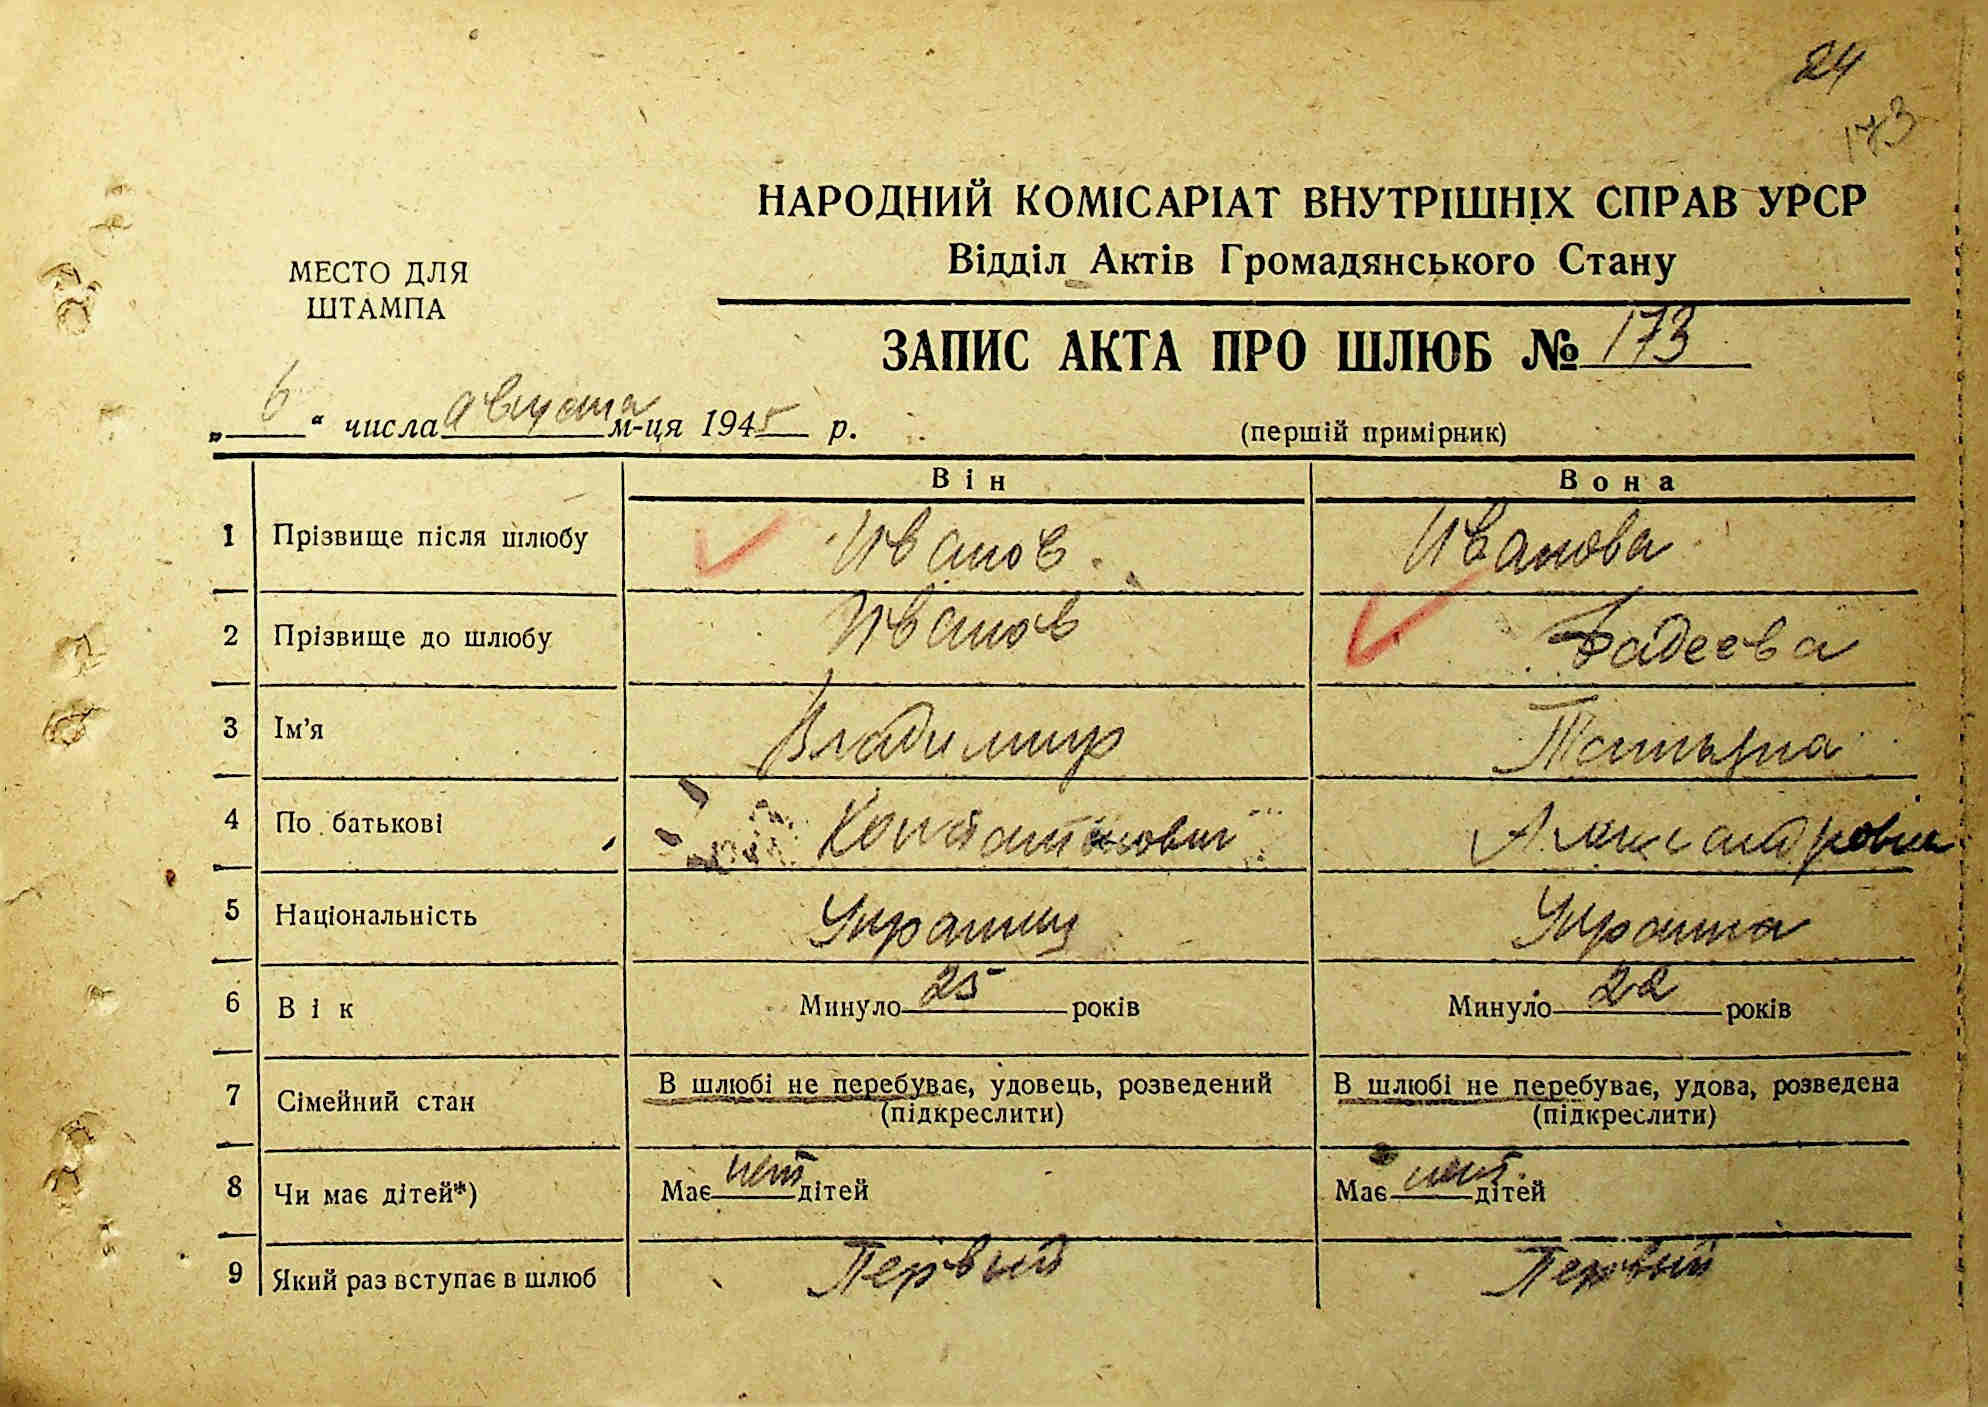 24
173
НАРОДНИЙ КОМІСАРІАТ ВНУТРІШНІХ СПРАВ УРСР
Відділ Актів Громадянського Стану
МЕСТО ДЛЯ
ШТАМПА
ЗАПИС АКТА ПРО ШЛЮБ № 173
„ 6 “ числа августа м-ця 1945 р.
(першій примірник)
Він Вона
1 Прізвище після шлюбу Иванов Иванова
2 Прізвище до шлюбу Иванов Фадеева
3 Ім'я Владимир Татьяна
4 По батькові Константинович Александровна
5 Національність Украинец Украинка
6 Вік Минуло 25 років Минуло 22 років
7 Сімейний стан В шлюбі не перебуває, удовець, розведений В шлюбі не перебуває, удова, розведена
(підкреслити) (підкреслити)
8 Чи має дітей*) Має нет дітей Має нет дітей
9 Який раз вступає в шлюб Первый Первый